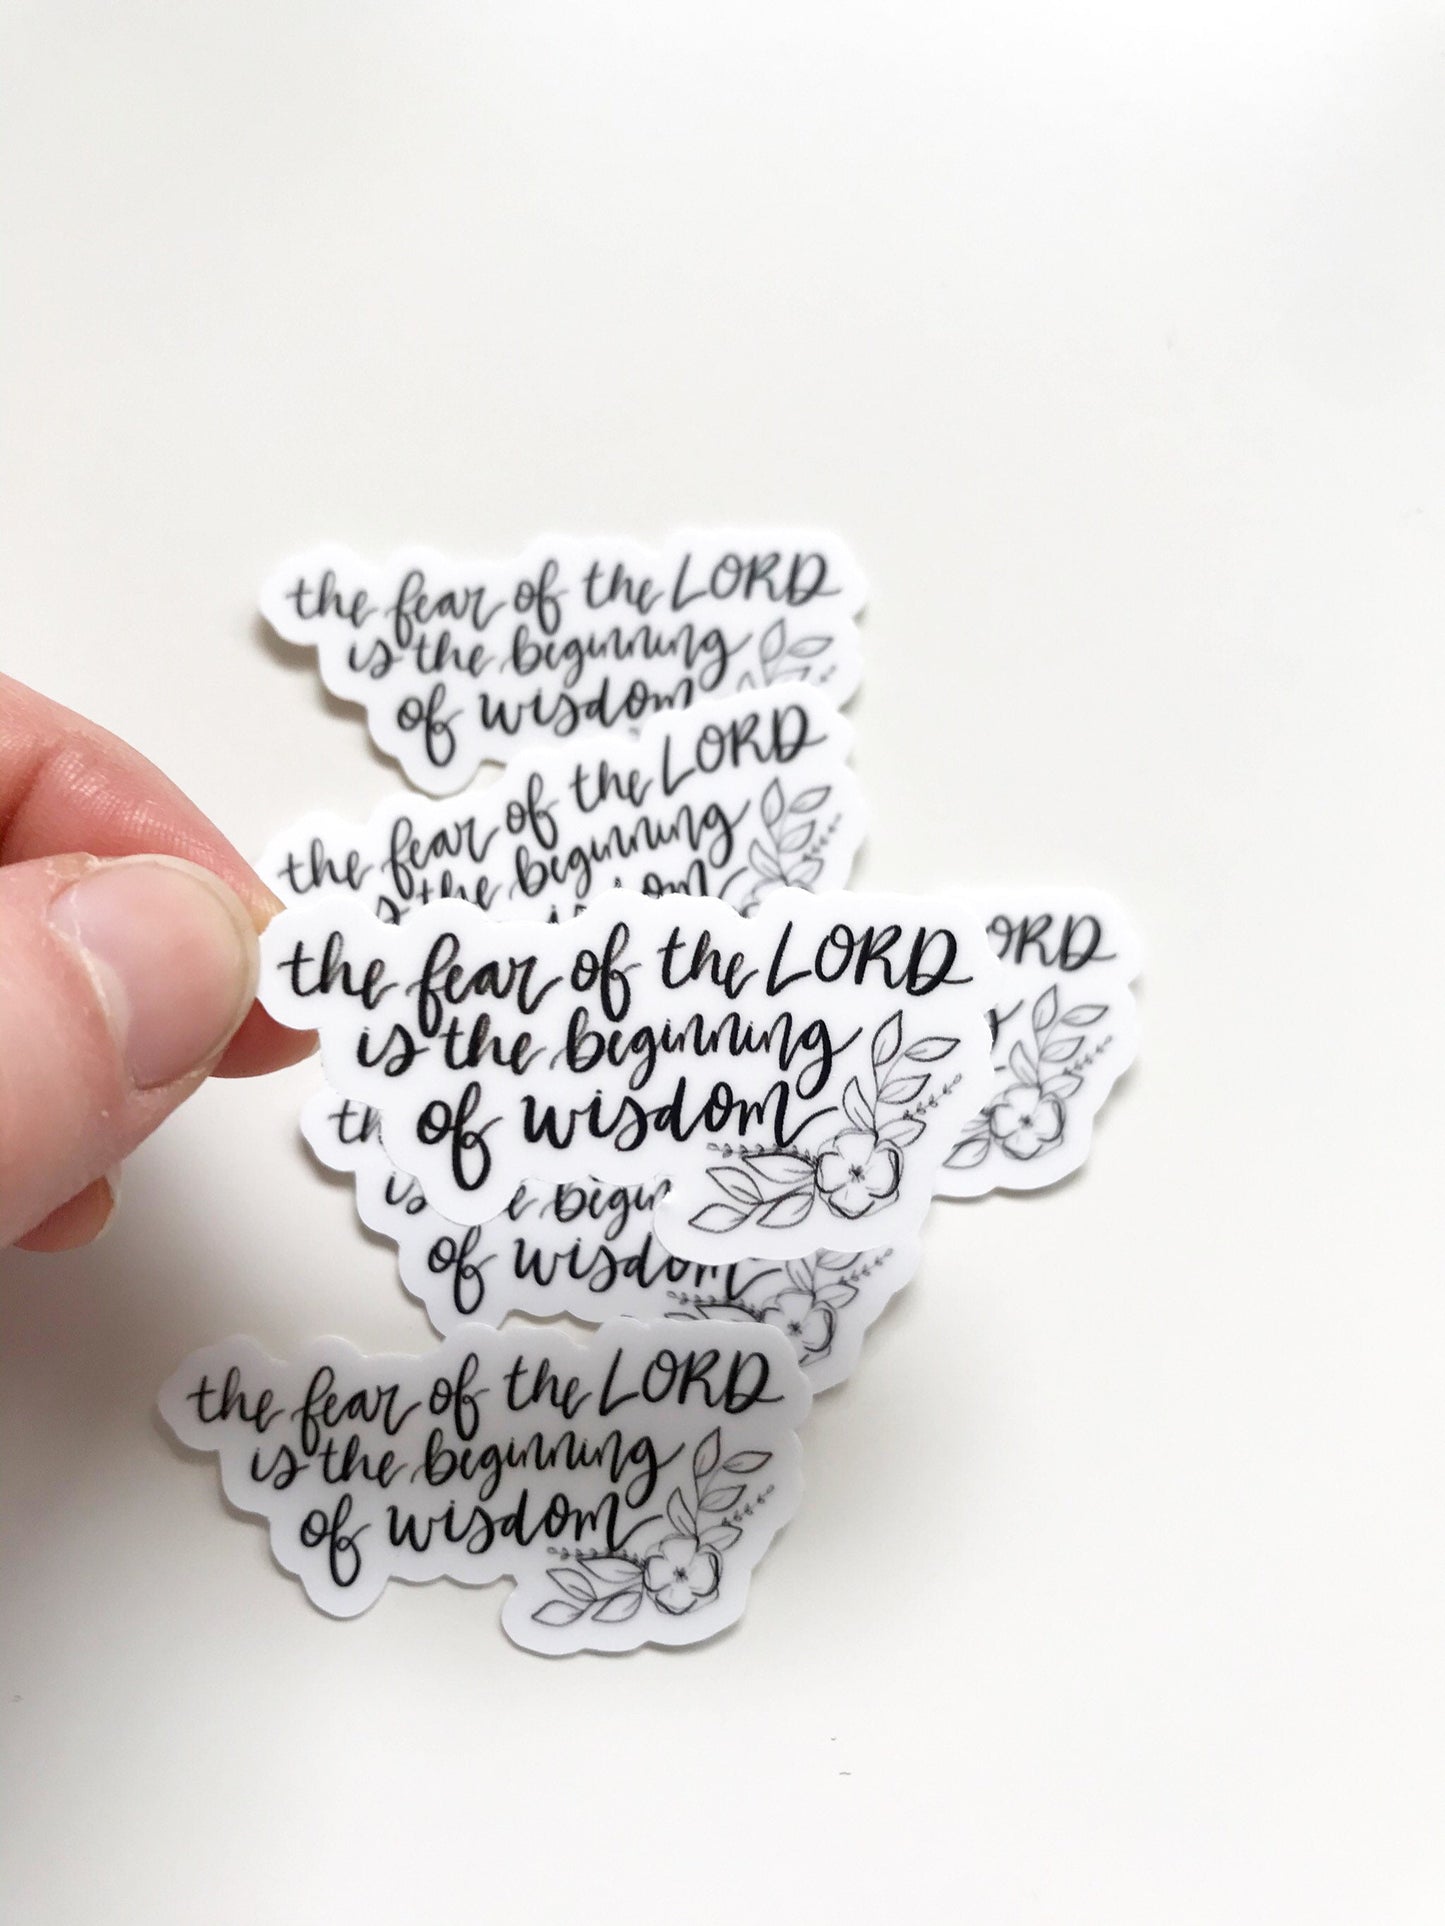 the fear of the LORD
is the beginning
of wisdom
the fear of the LORD
is the beginning
the fear of the LORD
is the beginning
of wisdom
LORD
of wisdom
the fear of the LORD
is the beginning
of wisdom